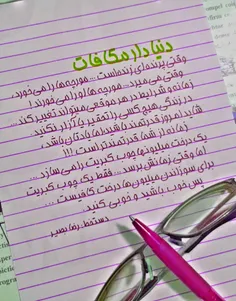 دنیا دار مکافات
وقتی پرنده ای زنده است... مورچه ها را می خورد،
وقتی می میرد... مورچه ها او را می خورند!
زمانه و شرایط در هر موقعی میتواند تغییر کند...
در زندگی هیچ کسی را تحقیر یا آزار نکنید.
شاید امروز قدرتمند باشید اما یادتان باشد،
زمانه از شما قدرتمندتر است!!!
یک درخت میلیونها چوب کبریت را می سازد...
اما وقتی زمانش برسد... فقط یک چوب کبریت
برای سوزاندن میلیون ها درخت کافیست...
پس خوب باشید و خوبی کنید.
دستخط رضا بصیر